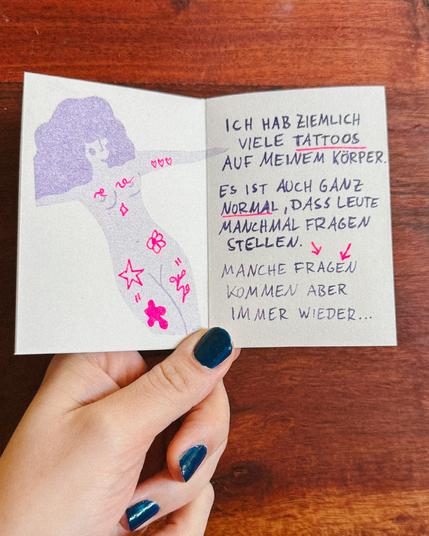 ICH HAB ZIEMLICH
VIELE TATTOOS
AUF MEINEM KÖRPER.
ES IST AUCH GANZ
NORMAL, DASS LEUTE
MANCHMAL FRAGEN
STELLEN.
MANCHE FRAGEN
KOMMEN ABER
IMMER WIEDER...